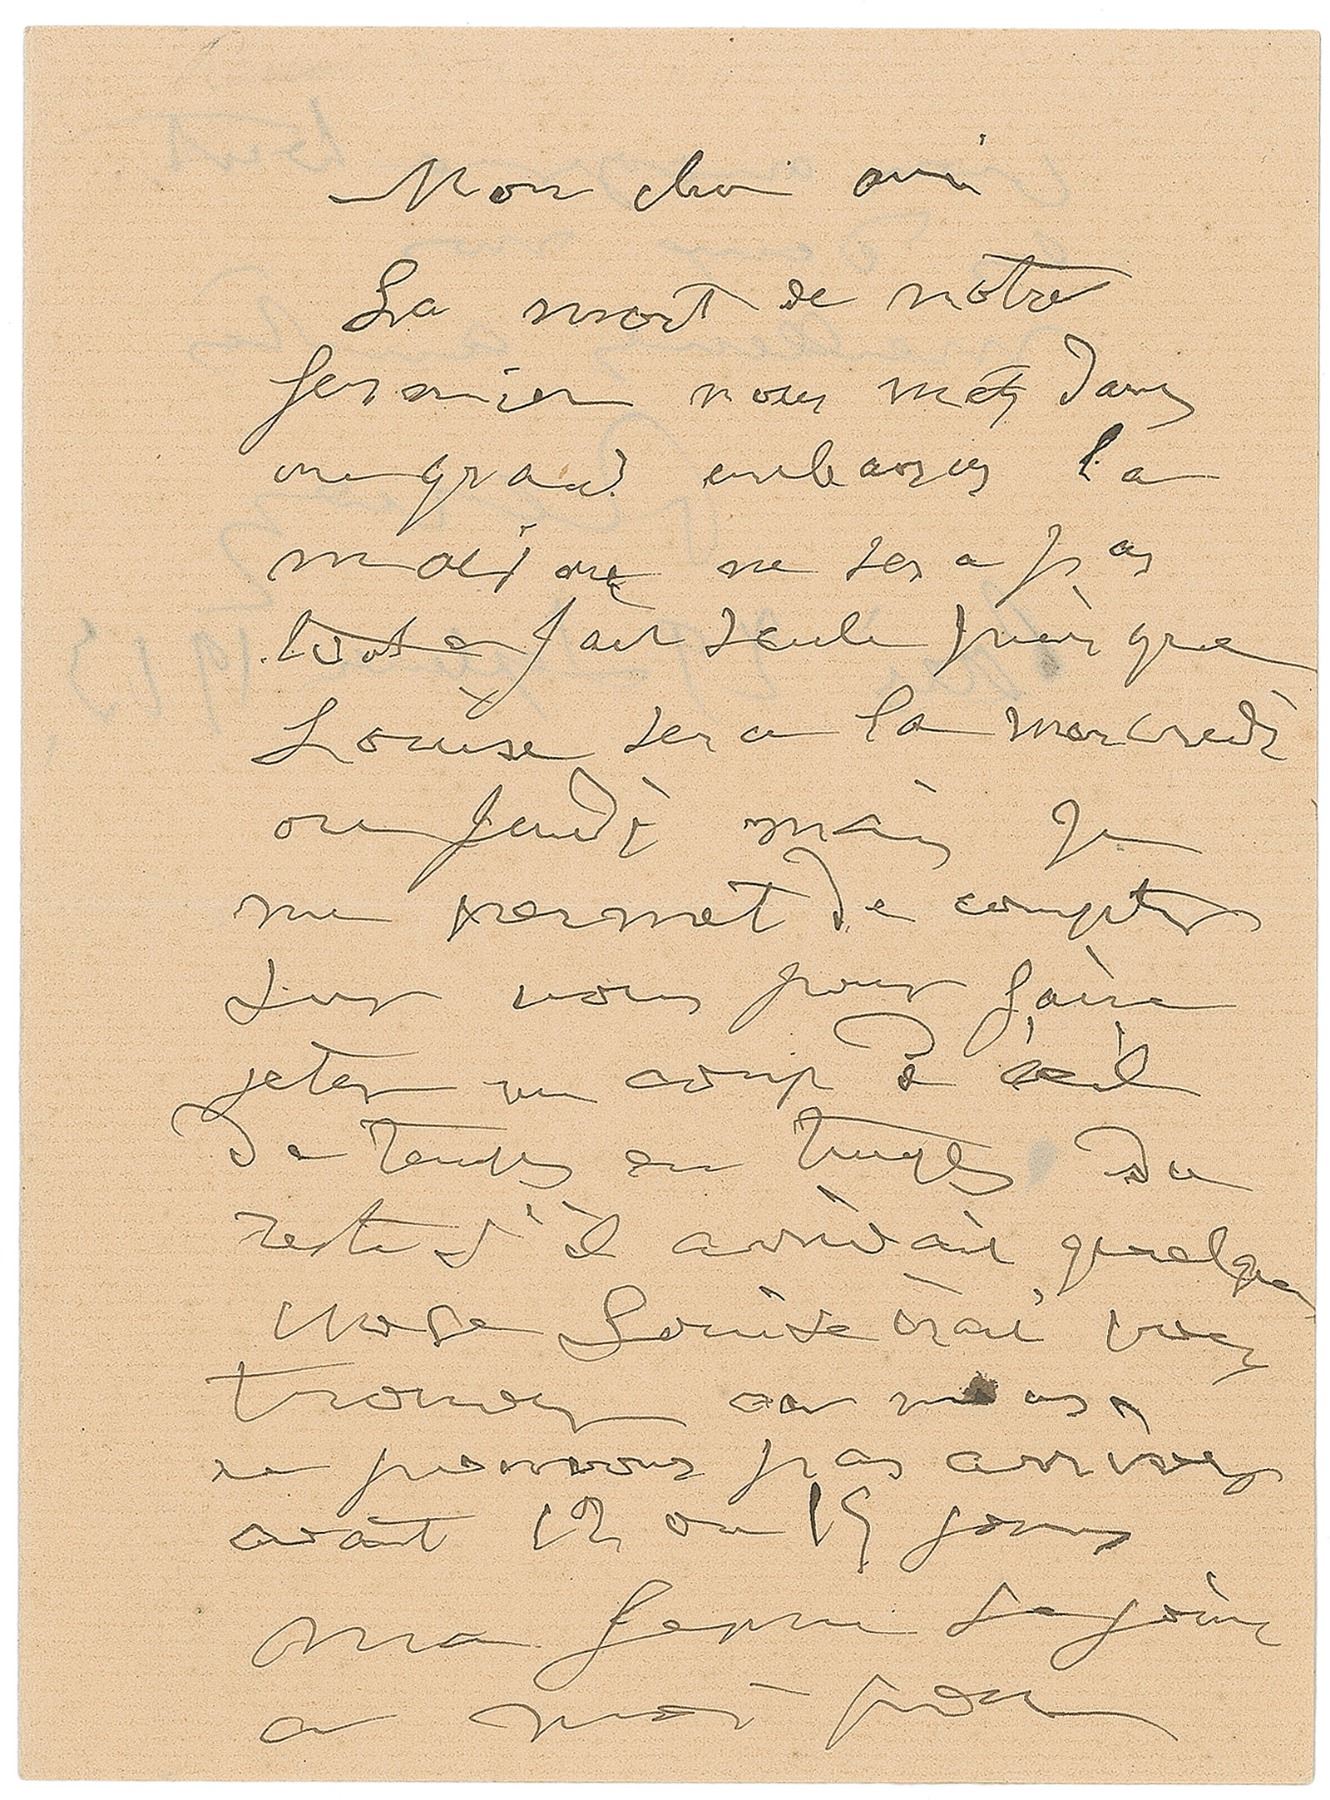 Mon cher ami
La mort de notre
fermier nous mets dans
un grand embarras la
maison ne sera pas
tout a fait seule puisque
Louise sera la mercredi
ou jeudi mais je
me permet de compter
sur vous pour faire
jeter un coup d'œil
de temps en temps du
reste s'il arrivait quelque
chose Louise irait vous
trouver car nous
ne pouvons pas arriver
avant 12 ou 15 jours
ma femme se joint
a moi pour